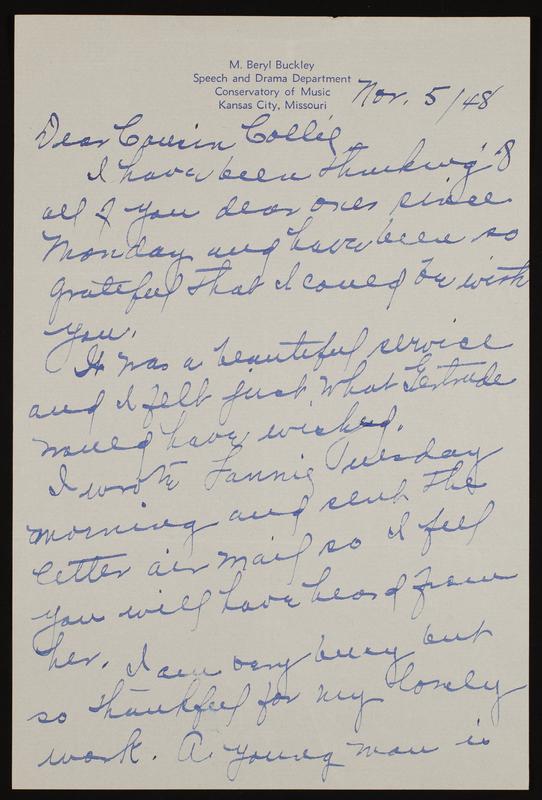 M. Beryl Buckley
Speech and Drama Department
Conservatory of Music
Kansas City, Missouri
Nov. 5/48
Dear Cousin Collie,
I have been thinking of
all of you dear ones since
Monday and have been so
grateful that I could be with
you.
It was a beautiful service
and I felt just what Gertrude
would have wished.
I wrote Fannie Tuesday
morning and sent the
letter air mail so I feel
you will have heard from
her. I am very busy but
so thankful for my lovely
work. A young man is